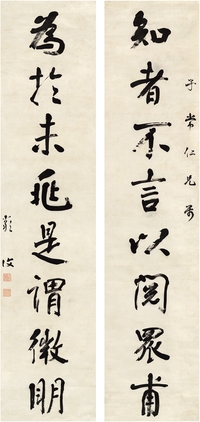 子常仁兄
知者不言以閱眾甫
為於未兆是謂微明